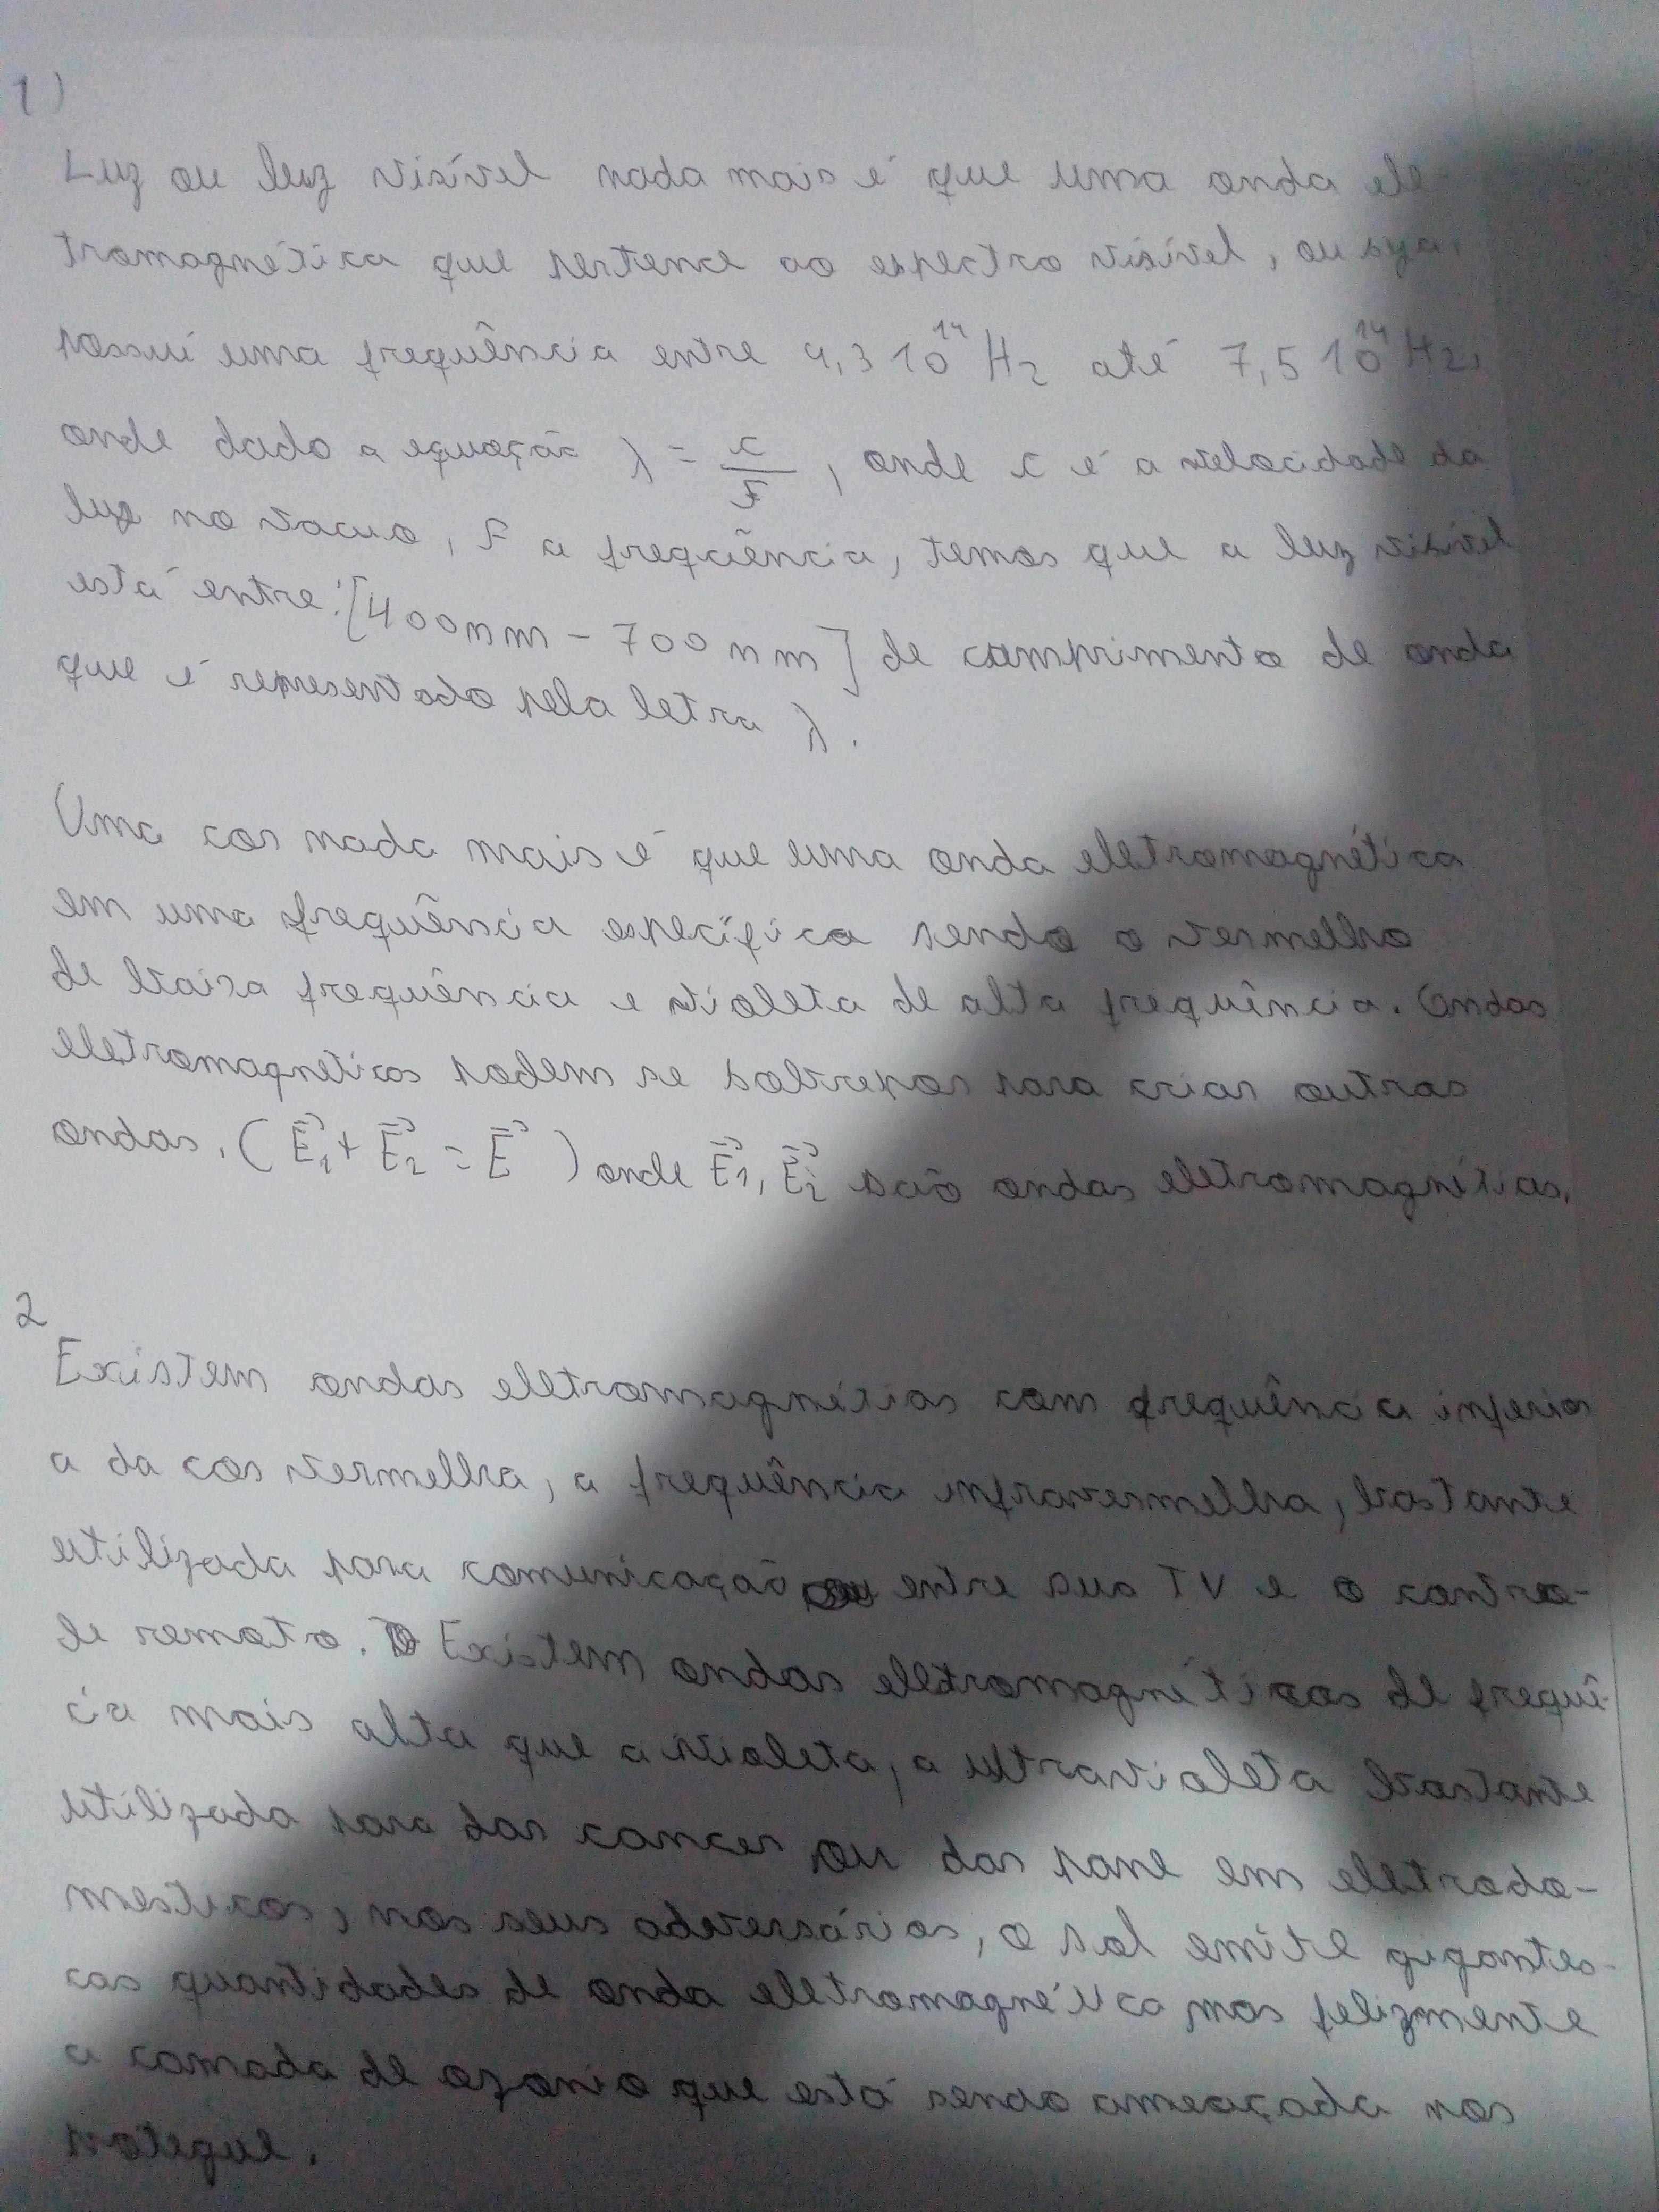 1)
Luz ou luz visível nada mais é que uma onda ele-
tromagnética que pertence ao espectro visível, ou seja,
possui uma frequência entre 4,3 10^14 Hz até 7,5 10^14 Hz,
onde dado a equação λ = c/F, onde c é a velocidade da
luz no vacuo, F a frequência, temos que a luz visível
está entre: [400nm - 700nm] de comprimento de onda
que é representado pela letra λ.
Uma cor nada mais é que uma onda eletromagnética
em uma frequência específica sendo o vermelho
de baixa frequência e violeta de alta frequência. Ondas
eletromagnéticas podem se sobrepor para criar outras
ondas. (E⃗1 + E⃗2 = E⃗) onde E⃗1, E⃗2 são ondas eletromagnétias.
2
Existem ondas eletromagnétias com frequência inferior
a da cor vermelha, a frequência infravermelha, bastante
utilizada para comunicação entre sua TV e o contro-
le remoto. Existem ondas eletromagnéticas de frequê-
cia mais alta que a violeta, a ultravioleta bastante
utilizada para dar cancer ou dar pane em eletrodo-
mesticos, nos seus adversários, o sol emite gigantes-
cas quantidades de onda eletromagnética mas felizmente
a camada de ozonio que está sendo ameaçada nos
protegue.